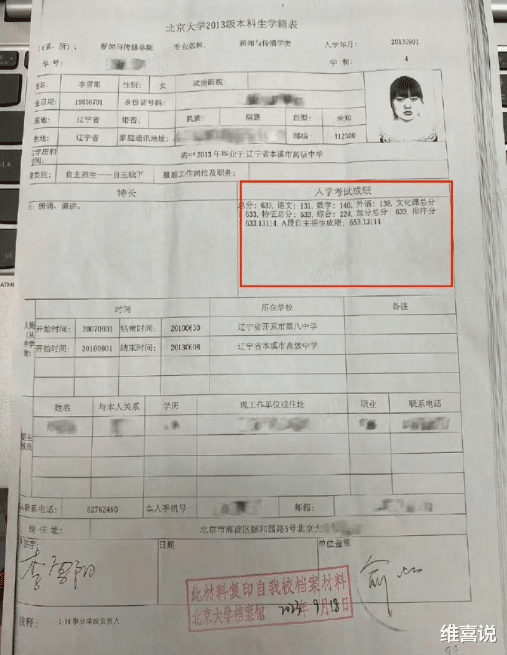 北京大学2013级本科生学籍表
新闻与传播学院 专业名称: 新闻与传播学类 入学年月: 20130901
学号 学制: 4
性别: 女 政治面貌:
身份证号码:
辽宁省 婚否: 民族: 血型: 未知
辽宁省 家庭通讯地址: 邮编:
高中2013年毕业于辽宁省本溪市高级中学
自主招生——自主线下 最后工作岗位及职务:
特长 入学考试成绩
朗诵、演讲。
总分: 633, 语文: 131, 数学: 140, 外语: 138, 文化课总分
633, 特征总分: 633, 综合: 224, 部分总分: 633, 排序分
633.13114, A段自主招生成绩: 653.13114
时间 所在学校 备注
开始时间: 20070901 结束时间: 20100630 辽宁省开原市第八中学
开始时间: 20100901 结束时间: 20130608 辽宁省本溪市高级中学
姓名 与本人关系 学历 现工作单位或住址 职业 联系电话
联系电话: 62762460 本人手机号 邮箱:
北京市海淀区颐和园路5号北京大
日期 单位盖章
此材料复印自我校档案材料
北京大学档案馆 2023年9月18日
维喜说